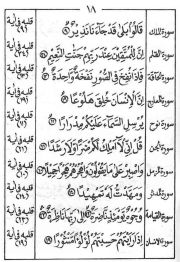 ١٨
سورة الملك قَالُوا بَلَىٰ قَدْ جَاءَنَا نَذِيرٌ قلبه في آية (٩)
سورة القلم إِنَّ لِلْمُتَّقِينَ عِندَ رَبِّهِمْ جَنَّاتِ النَّعِيمِ قلبه في آية (٣٤)
سورة الحاقة فَإِذَا نُفِخَ فِي الصُّورِ نَفْخَةٌ وَاحِدَةٌ قلبه في آية (١٣)
سورة المعارج إِنَّ الْإِنسَانَ خُلِقَ هَلُوعًا قلبه في آية (١٩)
سورة نوح يُرْسِلِ السَّمَاءَ عَلَيْكُم مِّدْرَارًا قلبه في آية (١١)
سورة الجن قُلْ إِنِّي لَا أَمْلِكُ لَكُمْ ضَرًّا وَلَا رَشَدًا قلبه في آية (٢١)
سورة المزمل وَاصْبِرْ عَلَىٰ مَا يَقُولُونَ وَاهْجُرْهُمْ هَجْرًا جَمِيلًا قلبه في آية (١٠)
سورة المدثر وَمَهَّدتُّ لَهُ تَمْهِيدًا قلبه في آية (١٤)
سورة القيامة وُجُوهٌ يَوْمَئِذٍ نَّاضِرَةٌ إِلَىٰ رَبِّهَا نَاظِرَةٌ قلبه في آية
سورة الإنسان إِذَا رَأَيْتَهُمْ حَسِبْتَهُمْ لُؤْلُؤًا مَّنثُورًا قلبه في آية (١٩)